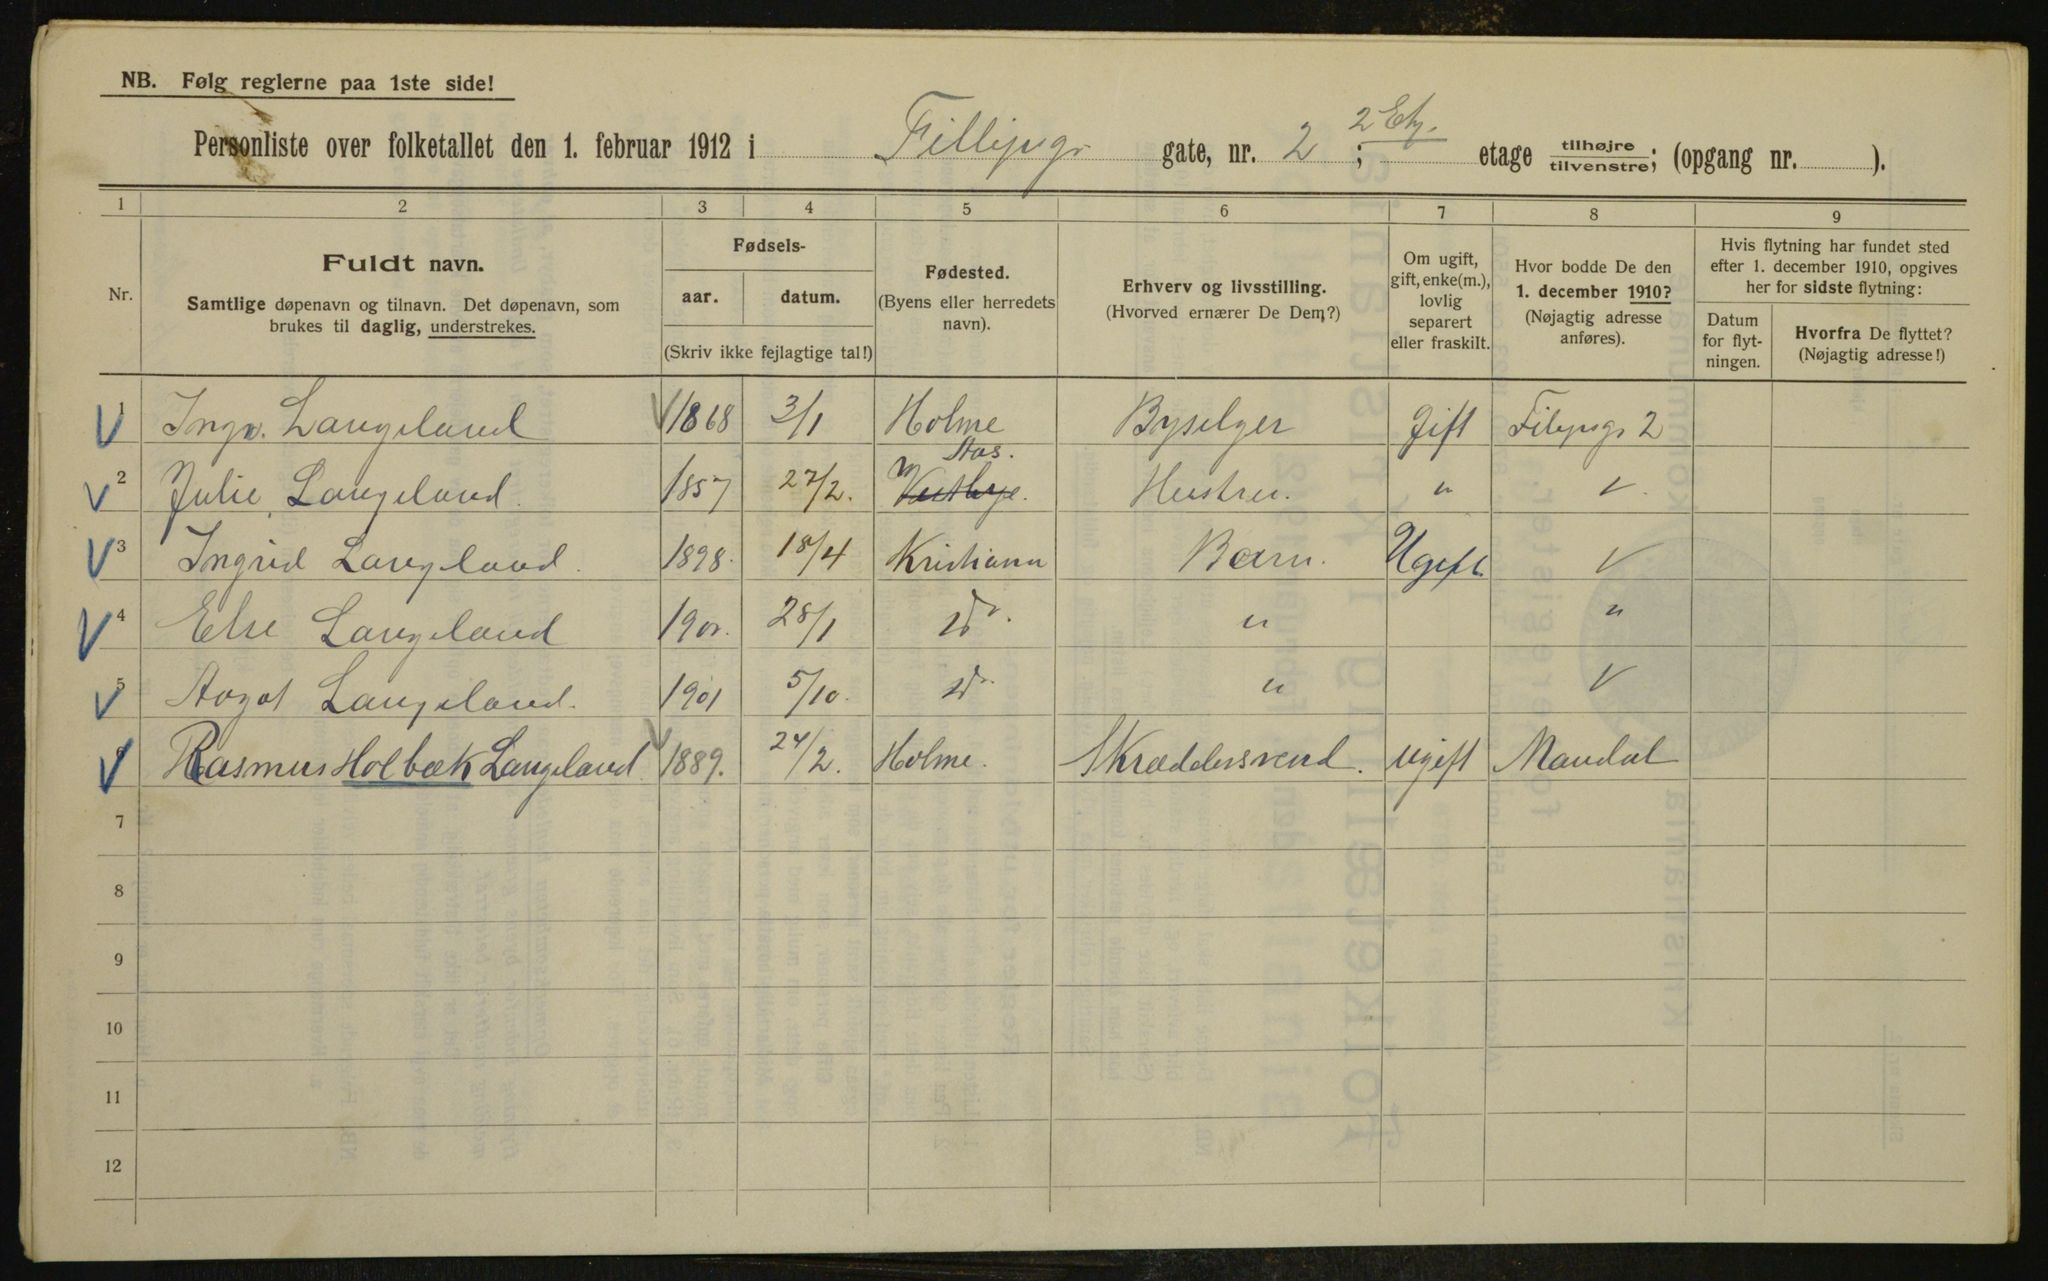 NB. Følg reglerne paa 1ste side!
Personliste over folketallet den 1. februar 1912 i Fillipsg. gate, nr. 2 ; 2 Etg. etage tilhøjre/tilvenstre; (opgang nr. ).
1 2 3 4 5 6 7 8 9
Nr.
Fuldt navn.
Samtlige døpenavn og tilnavn. Det døpenavn, som
brukes til daglig, understrekes.
Fødsels-
aar. datum.
(Skriv ikke fejlagtige tal!)
Fødested.
(Byens eller herredets
navn).
Erhverv og livsstilling.
(Hvorved ernærer De Dem?)
Om ugift,
gift, enke(m.),
lovlig
separert
eller fraskilt.
Hvor bodde De den
1. december 1910?
(Nøjagtig adresse
anføres).
Hvis flytning har fundet sted
efter 1. december 1910, opgives
her for sidste flytning:
Datum
for flyt-
ningen.
Hvorfra De flyttet?
(Nøjagtig adresse!)
1 Ingv. Langeland 1868 3/1 Holme Byselger gift Filipsg 2
Aas.
2 Julie Langeland. 1857 27/2. Vestbye. Hustru. " "
3 Ingrid Langeland. 1898. 18/4 Kristiania Barn. Ugift "
4 Else Langeland 1900. 28/1 do. " "
5 Aagot Langeland. 1901 5/10. do. " "
6 Rasmus Holbæk Langeland 1889. 24/2. Holme. Skræddersvend. ugift Mandal
7
8
9
10
11
12